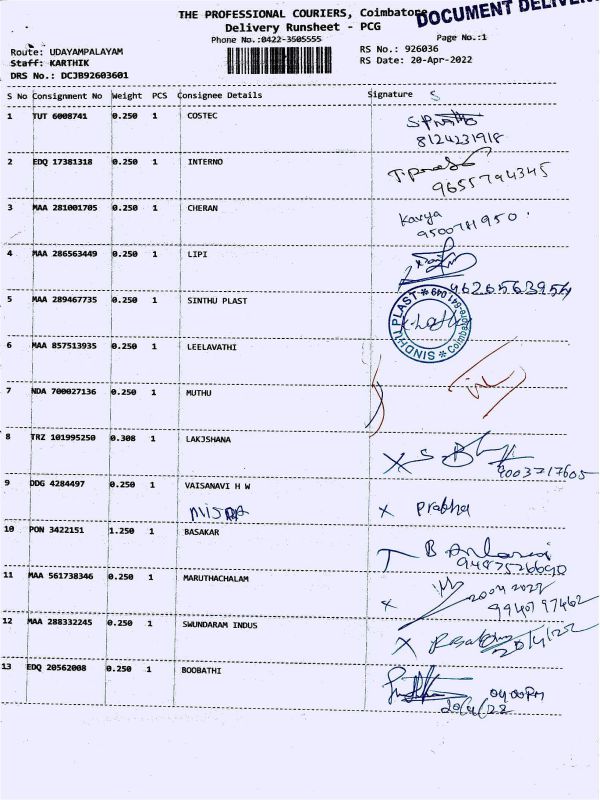 THE PROFESSIONAL COURIERS, Coimbatore
DOCUMENT DELIVER
Delivery Runsheet - PCG
Phone No.:0422-3505555
Page No.:1
Route: UDAYAMPALAYAM
RS No.: 926036
Staff: KARTHIK
RS Date: 20-Apr-2022
DRS No.: DCJB92603601
S No Consignment No Weight PCS Consignee Details Signature
1 TUT 6008741 0.250 1 COSTEC
8124231918
2 EDQ 17381318 0.250 1 INTERNO
9655794345
3 MAA 281001705 0.250 1 CHERAN Kavya
9500781950
4 MAA 286563449 0.250 1 LIPI
4626563954
5 MAA 289467735 0.250 1 SINTHU PLAST
SINDHU PLAST * Coimbatore-641 049 *
6 MAA 857513935 0.250 1 LEELAVATHI
7 NDA 700027136 0.250 1 MUTHU
8 TRZ 101995250 0.308 1 LAKJSHANA
9003717605
9 DDG 4284497 0.250 1 VAISANAVI H W
x Prabha
10 PON 3422151 1.250 1 BASAKAR
9487526690
11 MAA 561738346 0.250 1 MARUTHACHALAM
x
12 MAA 288332245 0.250 1 SWUNDARAM INDUS
x 20/4/22
13 EDQ 20562008 0.250 1 BOOBATHI
04:00PM
20/4/22